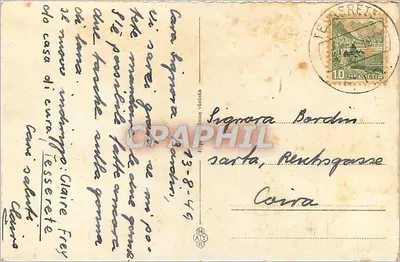 Cara Signora Bordin,
12-8-49
vi sarei grata se mi po-
tete mandare le due gonne.
S'è possibile fatte ancora
due tasche sulla gonna
de lana.
il nuovo indirizzo: Claire Frey
da casa di cura Tesserete
Cari saluti
Claire
TESSERETE
10
HELVETIA
Signora Bordin
sarta, Reichsgasse
Coira
CPARAMA